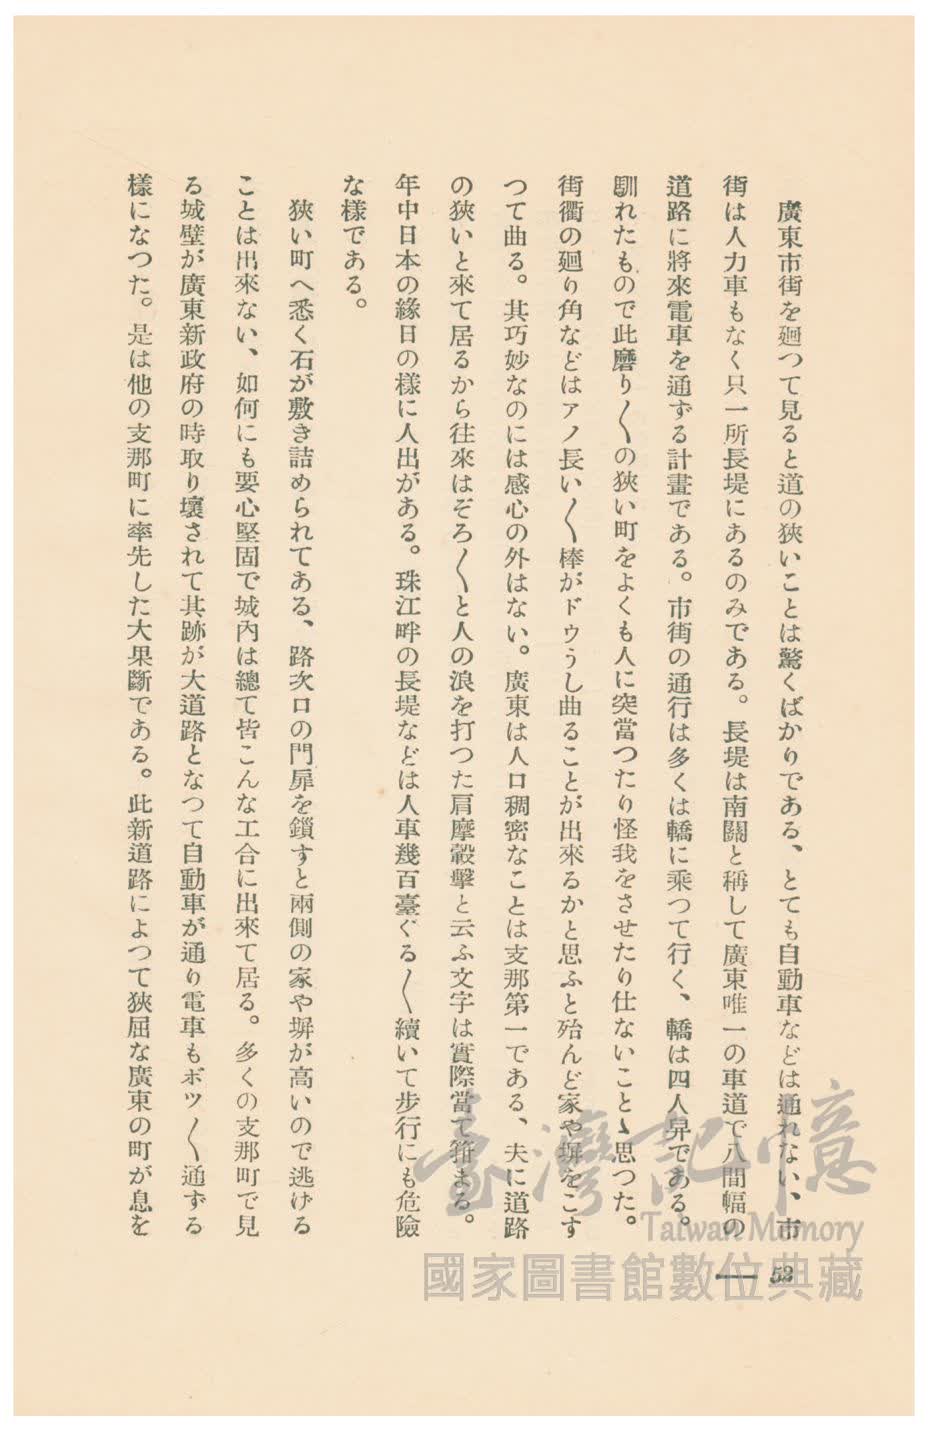 廣東市街を廻つて見ると道の狹いことは驚くばかりである、とても自動車などは通れない、市
街は人力車もなく只一所長堤にあるのみである。長堤は南關と稱して廣東唯一の車道で八間幅の
道路に將來電車を通ずる計畫である。市街の通行は多くは轎に乘つて行く、轎は四人舁である。
馴れたもので此磨り〱の狹い町をよくも人に突當つたり怪我をさせたり仕ないことゝ思つた。
街衢の廻り角などはアノ長い〱棒がドウうし曲ることが出來るかと思ふと殆んど家や塀をこす
つて曲る。其巧妙なのには感心の外はない。廣東は人口稠密なことは支那第一である、夫に道路
の狹いと來て居るから往來はぞろ〱と人の浪を打つた肩摩轂擊と云ふ文字は實際當て箝まる。
年中日本の緣日の樣に人出がある。珠江畔の長堤などは人車幾百臺ぐる〱續いて步行にも危險
な樣である。
狹い町へ悉く石が敷き詰められてある、路次口の門扉を鎖すと兩側の家や塀が高いので逃げる
ことは出來ない、如何にも要心堅固で城內は總て皆こんな工合に出來て居る。多くの支那町で見
る城壁が廣東新政府の時取り壞されて其跡が大道路となつて自動車が通り電車もボツ〱通ずる
樣になつた。是は他の支那町に率先した大果斷である。此新道路によつて狹屈な廣東の町が息を
— 52
臺灣記憶
Taiwan Memory
國家圖書館數位典藏